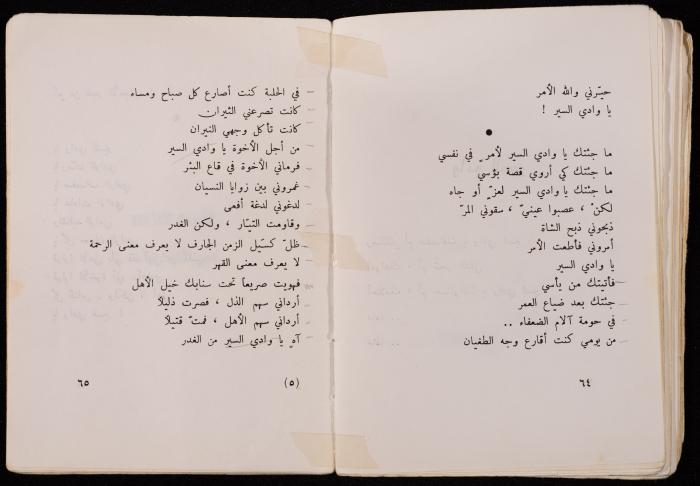 حيّرني والله الأمر
يا وادي السير !
ما جئتك يا وادي السير لأمر في نفسي
ما جئتك كي أروي قصة بؤسي
ما جئتك يا وادي السير لعزّ أو جاه
لكنْ ، عصبوا عينيّ ، سقوني المرّ
ذبحوني ذبح الشاة
أمروني فأطعت الأمر
يا وادي السير
فأتيتك من يأسي
جئتك بعد ضياع العمر
في حومة آلام الضعفاء ..
من يومي كنت أقارع وجه الطغيان
٦٤
في الحلبة كنت أصارع كل صباح ومساء
كانت تصرعني الثيران
كانت تأكل وجهي النيران
من أجل الأخوة يا وادي السير
فرماني الأخوة في قاع البئر
غمروني بين زوايا النسيان
لدغوني لدغة أفعى
وقاومت التيّار ، ولكن الغدر
ظلّ كسيل الزمن الجارف لا يعرف معنى الرحمة
لا يعرف معنى القهر
فهويت صريعاً تحت سنابك خيل الأهل
أرداني سهم الذل ، فصرت ذليلاً
أرداني سهم الأهل ، فمتّ قتيلاً
آهٍ يا وادي السير من الغدر
(٥)
٦٥